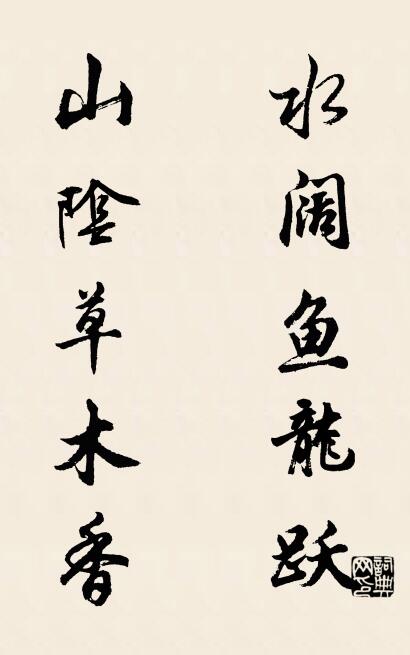 水阔鱼龍跃
山陰草木香
詞典网